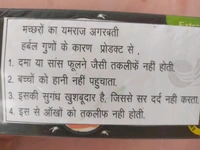 मच्छरों का यमराज अगरबती
हर्बल गुणों के कारण प्रोडक्ट से ,
1. दमा या सांस फूलने जैसी तकलीफें नहीं होती.
2. बच्चों को हानी नहीं पहुचाता.
3. इसकी सुगंध खुशबूदार है, जिससे सर दर्द नही करता.
4. इस से ऑखों को तकलीफ नही होती.